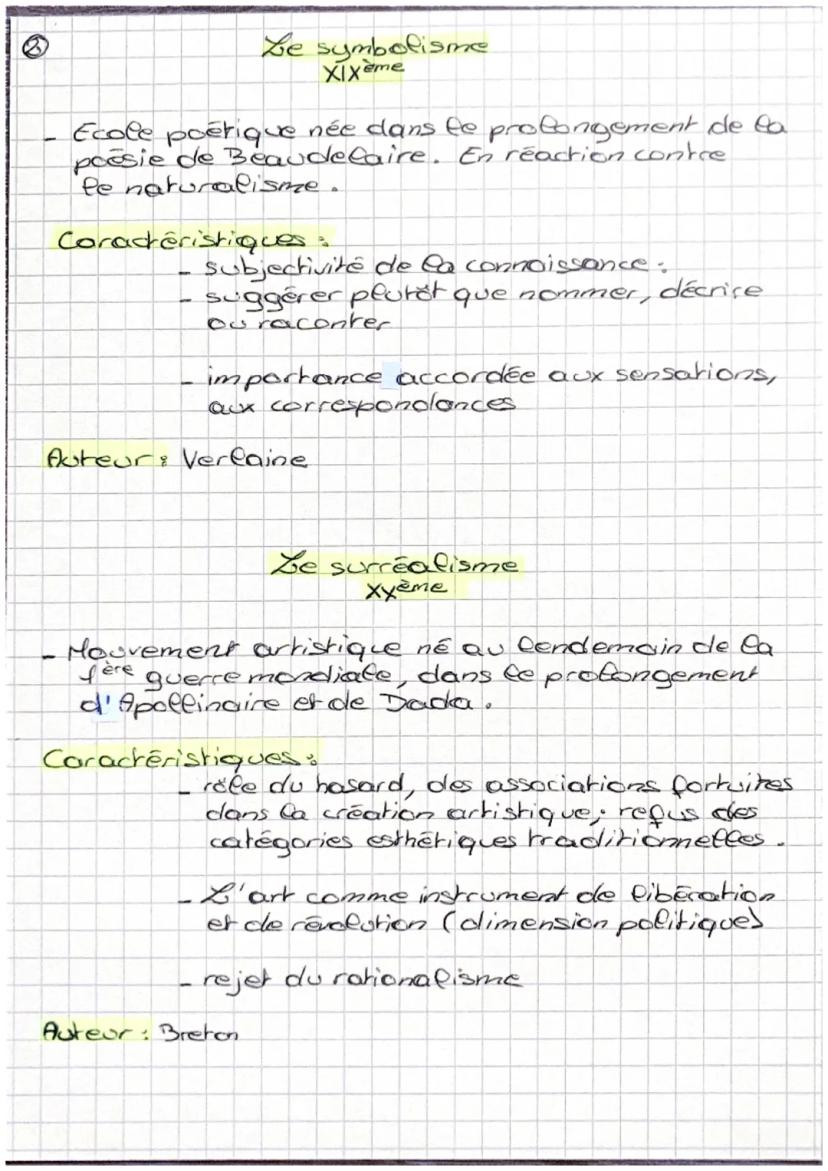 ②
Le symbolisme
XIXème
- Ecole poétique née dans le prolongement de la
poésie de Beaudelaire. En réaction contre
le naturalisme.
Caractéristiques :
- subjectivité de la connaissance :
- suggérer plutôt que nommer, décrire
ou raconter
- importance accordée aux sensations,
aux correspondances
Auteur : Verlaine
Le surréalisme
XXème
- Mouvement artistique né au lendemain de la
1ère guerre mondiale, dans le prolongement
d'Apollinaire et de Dada.
Caractéristiques :
- rôle du hasard, des associations fortuites
dans la création artistique, refus des
catégories esthétiques traditionnelles.
- L'art comme instrument de libération
et de révolution (dimension politique)
- rejet du rationalisme
Auteur : Breton